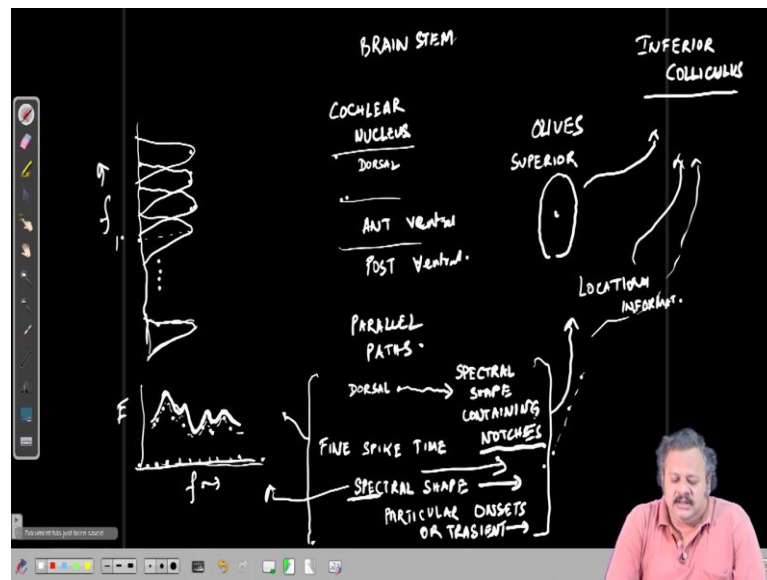 BRAIN STEM
INFERIOR
COLLICULUS
COCHLEAR
NUCLEUS
DORSAL
ANT Ventral
POST Ventral.
OLIVES
SUPERIOR
f
LOCATION
INFORMAT.
PARALLEL
PATHS.
DORSAL
SPECTRAL
SHAPE
CONTAINING
NOTCHES
FINE SPIKE TIME
SPECTRAL SHAPE
PARTICULAR ONSETS
OR TRASIENT
E
f
Document has just been saved